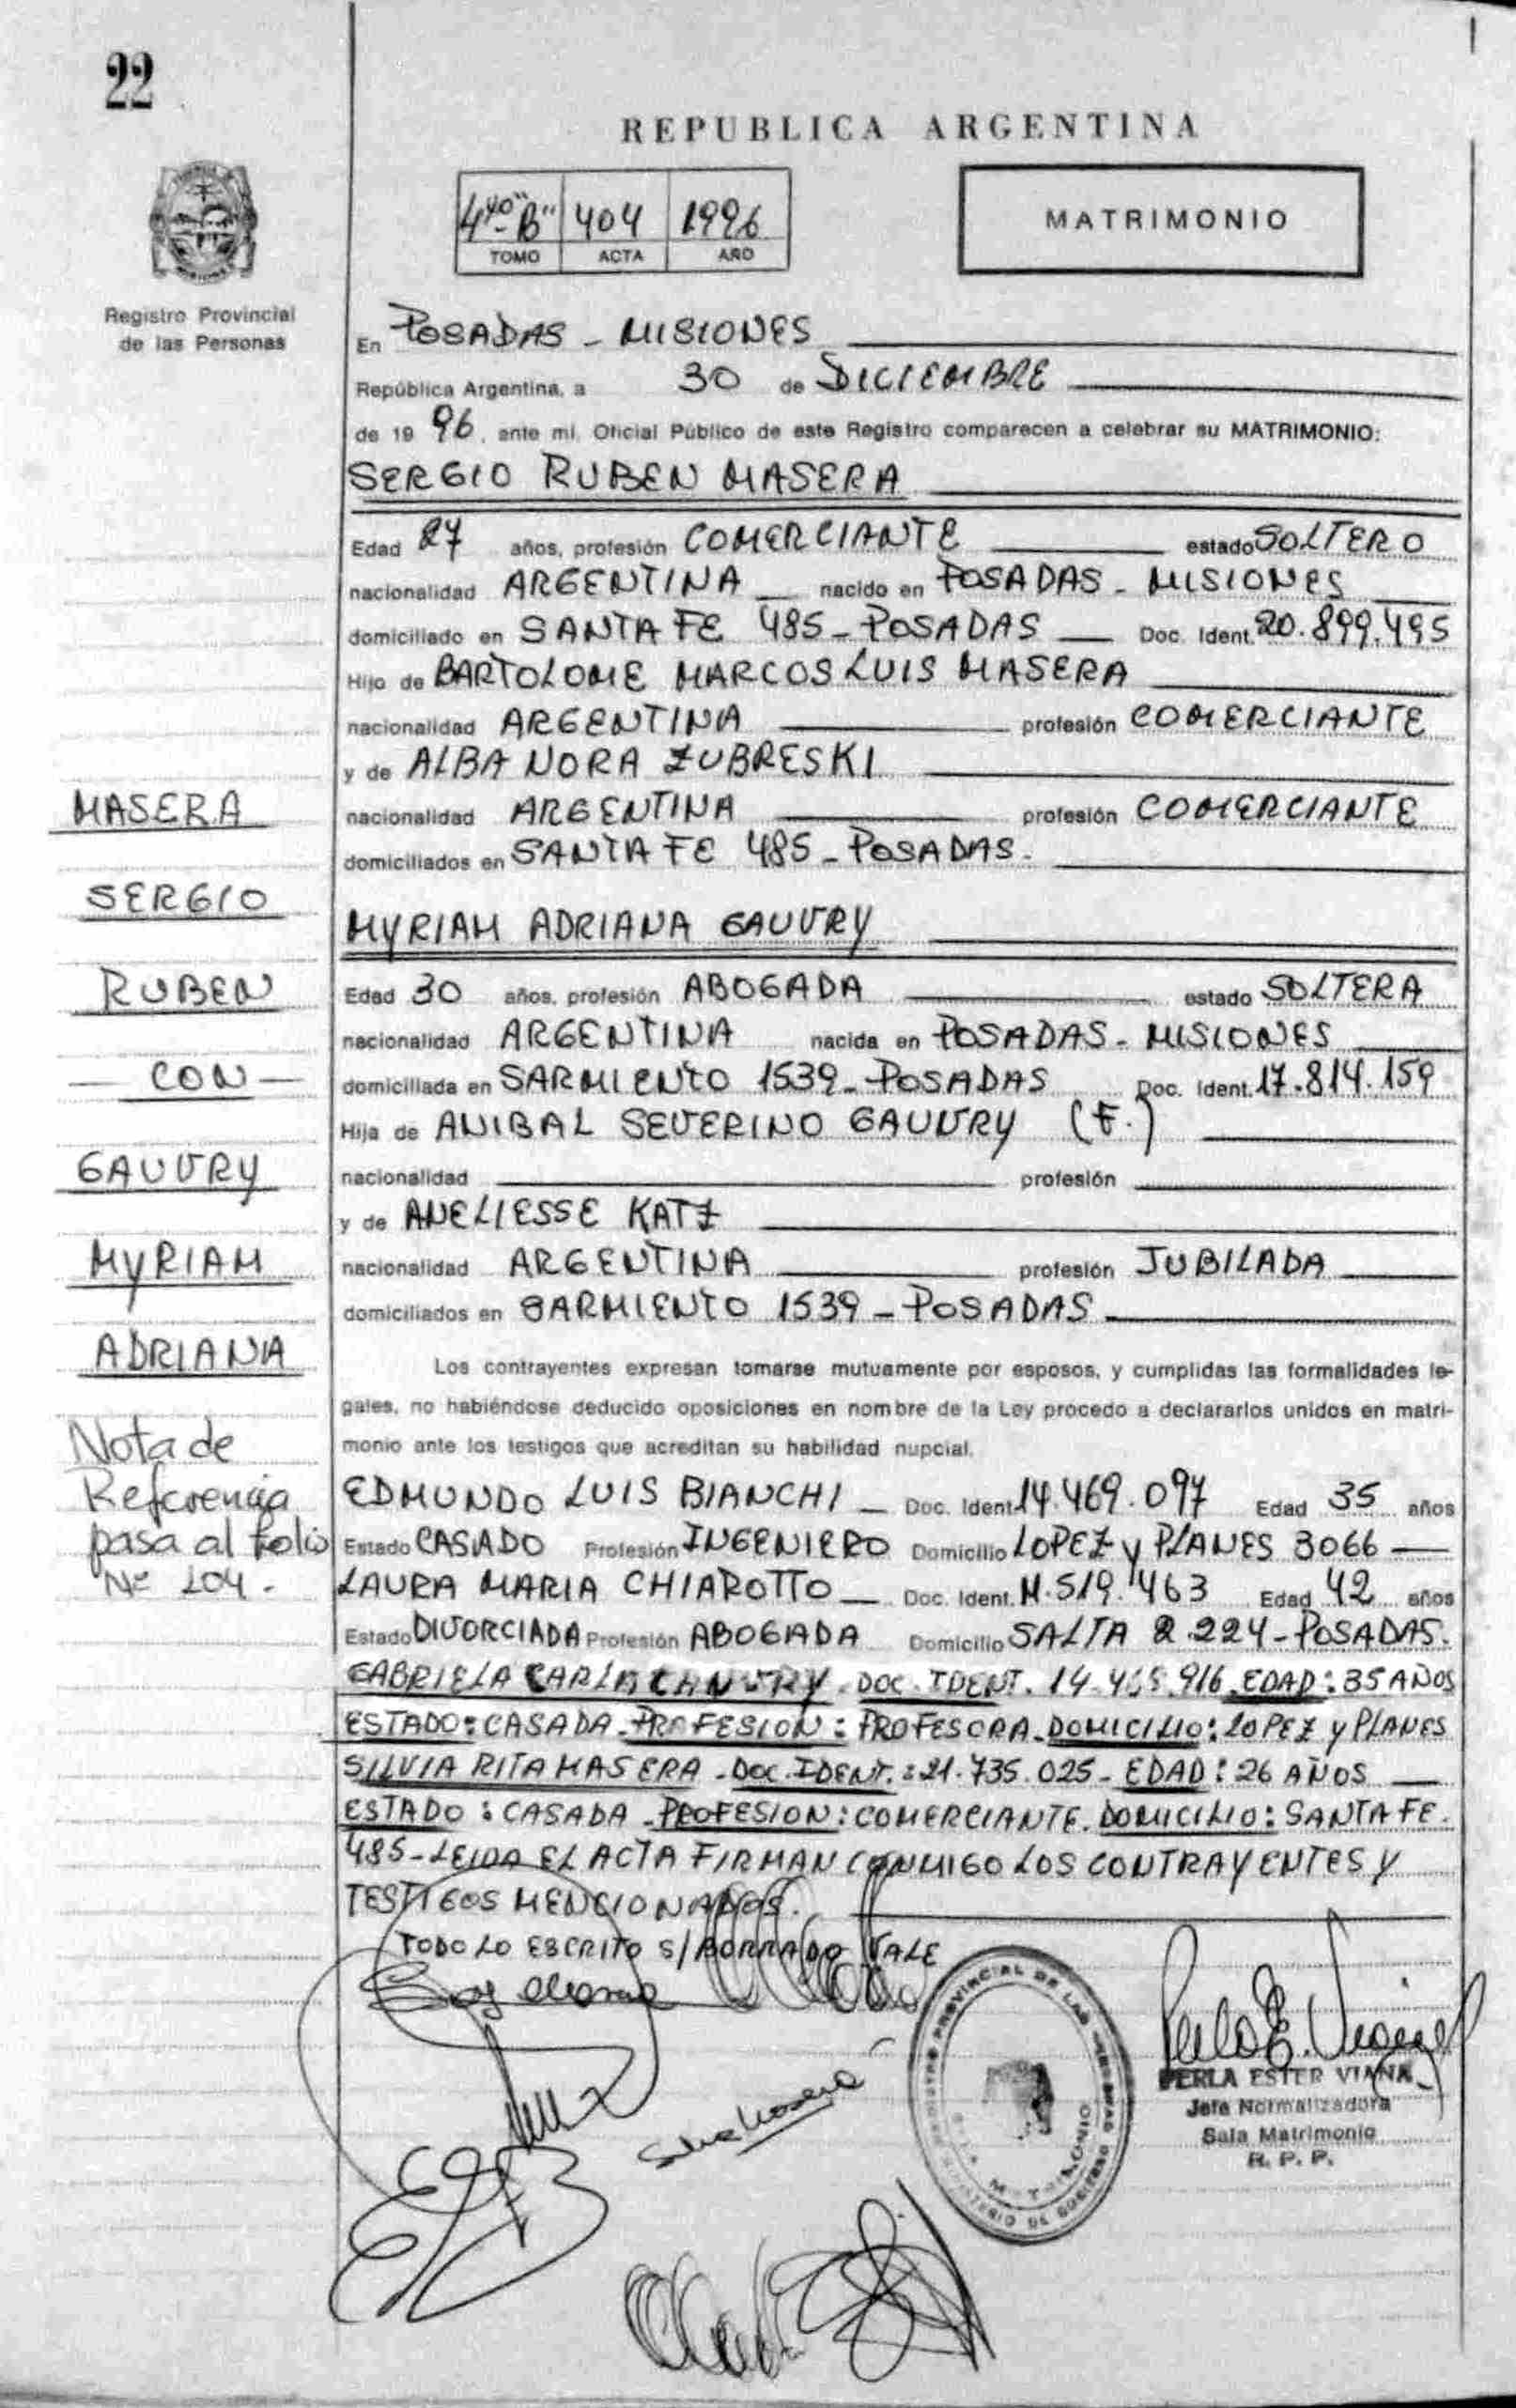 22
REPUBLICA ARGENTINA
4to "B" 404 1996
TOMO ACTA AÑO
MATRIMONIO
Registro Provincial
de las Personas
En POSADAS - MISIONES
República Argentina, a 30 de DICIEMBRE
de 19 96, ante mi, Oficial Público de este Registro comparecen a celebrar su MATRIMONIO:
SERGIO RUBEN MASERA
Edad 27 años, profesión COMERCIANTE estado SOLTERO
nacionalidad ARGENTINA nacido en POSADAS - MISIONES
domiciliado en SANTA FE 485 - POSADAS Doc. Ident. 20.899.495
Hijo de BARTOLOME MARCOS LUIS MASERA
nacionalidad ARGENTINA profesión COMERCIANTE
y de ALBA NORA ZUBRESKI
nacionalidad ARGENTINA profesión COMERCIANTE
domiciliados en SANTA FE 485 - POSADAS.
MYRIAM ADRIANA GAUVRY
Edad 30 años, profesión ABOGADA estado SOLTERA
nacionalidad ARGENTINA nacida en POSADAS - MISIONES
domiciliada en SARMIENTO 1539 - POSADAS Doc. Ident. 17.814.159
Hija de ANIBAL SEVERINO GAUVRY (F.)
nacionalidad profesión
y de ANELIESSE KATZ
nacionalidad ARGENTINA profesión JUBILADA
domiciliados en SARMIENTO 1539 - POSADAS
Los contrayentes expresan tomarse mutuamente por esposos, y cumplidas las formalidades le-
gales, no habiéndose deducido oposiciones en nombre de la Ley procedo a declararlos unidos en matri-
monio ante los testigos que acreditan su habilidad nupcial.
EDMUNDO LUIS BIANCHI - Doc. Ident. 14.469.097 Edad 35 años
Estado CASADO Profesión INGENIERO Domicilio LOPEZ y PLANES 3066
LAURA MARIA CHIAROTTO Doc. Ident. 11.519.463 Edad 42 años
Estado DIVORCIADA Profesión ABOGADA Domicilio SALTA 2.224 - POSADAS.
GABRIELA CARLA DOC. IDENT. EDAD: 35 AÑOS
ESTADO: CASADA - PROFESION: PROFESORA - DOMICILIO: LOPEZ y PLANES
SILVIA RITA MASERA - DOC. IDENT.: 21.735.025 - EDAD: 26 AÑOS
ESTADO: CASADA - PROFESION: COMERCIANTE. DOMICILIO: SANTA FE.
485 - LEIDA EL ACTA FIRMAN CONMIGO LOS CONTRAYENTES Y
TESTIGOS MENCIONADOS.
TODO LO ESCRITO S/BORRADO VALE
MASERA
SERGIO
RUBEN
- CON -
GAUVRY
MYRIAM
ADRIANA
Nota de
Referencia
pasa al folio
Nº 104.
PERLA ESTER VIANA
Jefa Normalizadora
Sala Matrimonio
R. P. P.